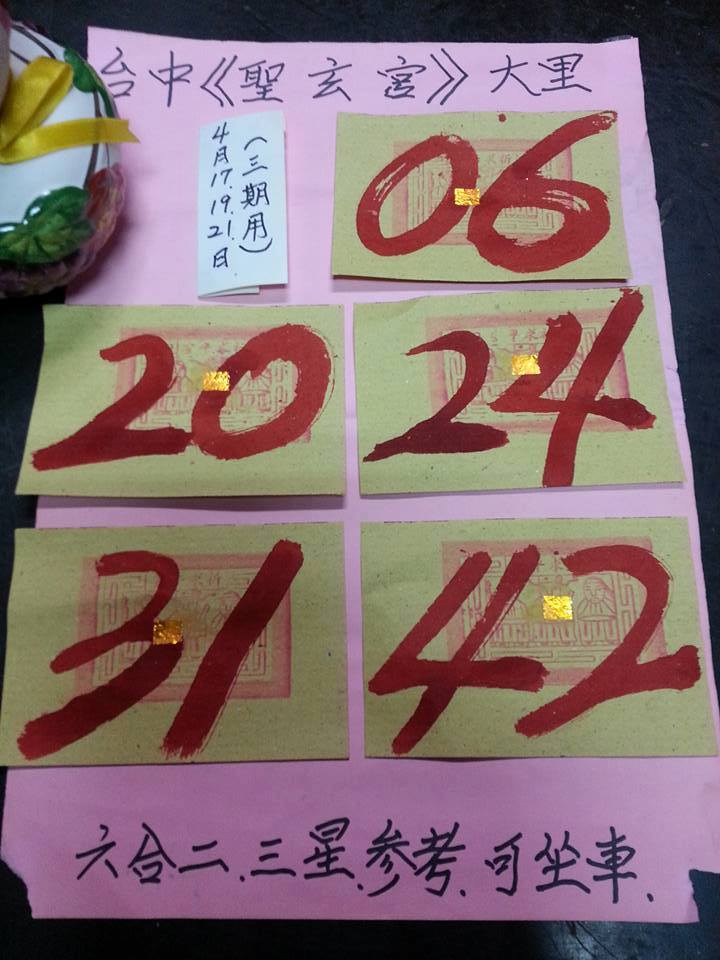 台中《聖玄宮》大里
(三期用)
4月17.19.21.日.
06
20
24
31
42
六合.二.三星.參考.可坐車.